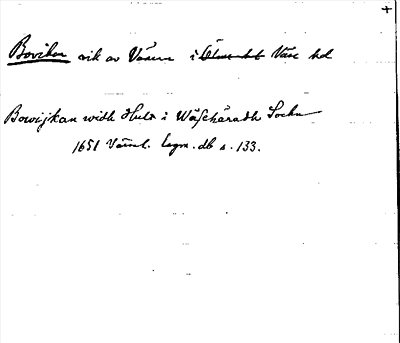 Boviken vik av Vänern i Ölme hd Väse hd
Bowijkan widh Hult i Wäsehäradh Sochn
1651 Värml. lagm. db s. 133.